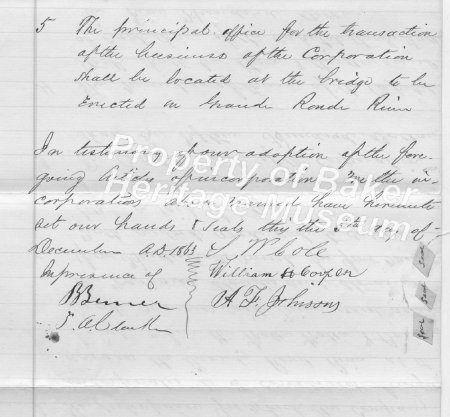 5 The principal office for the transaction
of the business of the Corporation
shall be located at the bridge to be
Erected on Grande Ronde River
In testimony of our adoption of the fore-
going Articles of incorporation We the in-
corporators above named have hereunto
set our hands & Seals this the 5th day of
December A.D. 1863 S W Cole
In presence of William H Cooper
A F Johnson
Seal
Seal
Seal
Property of Baker
Heritage Museum